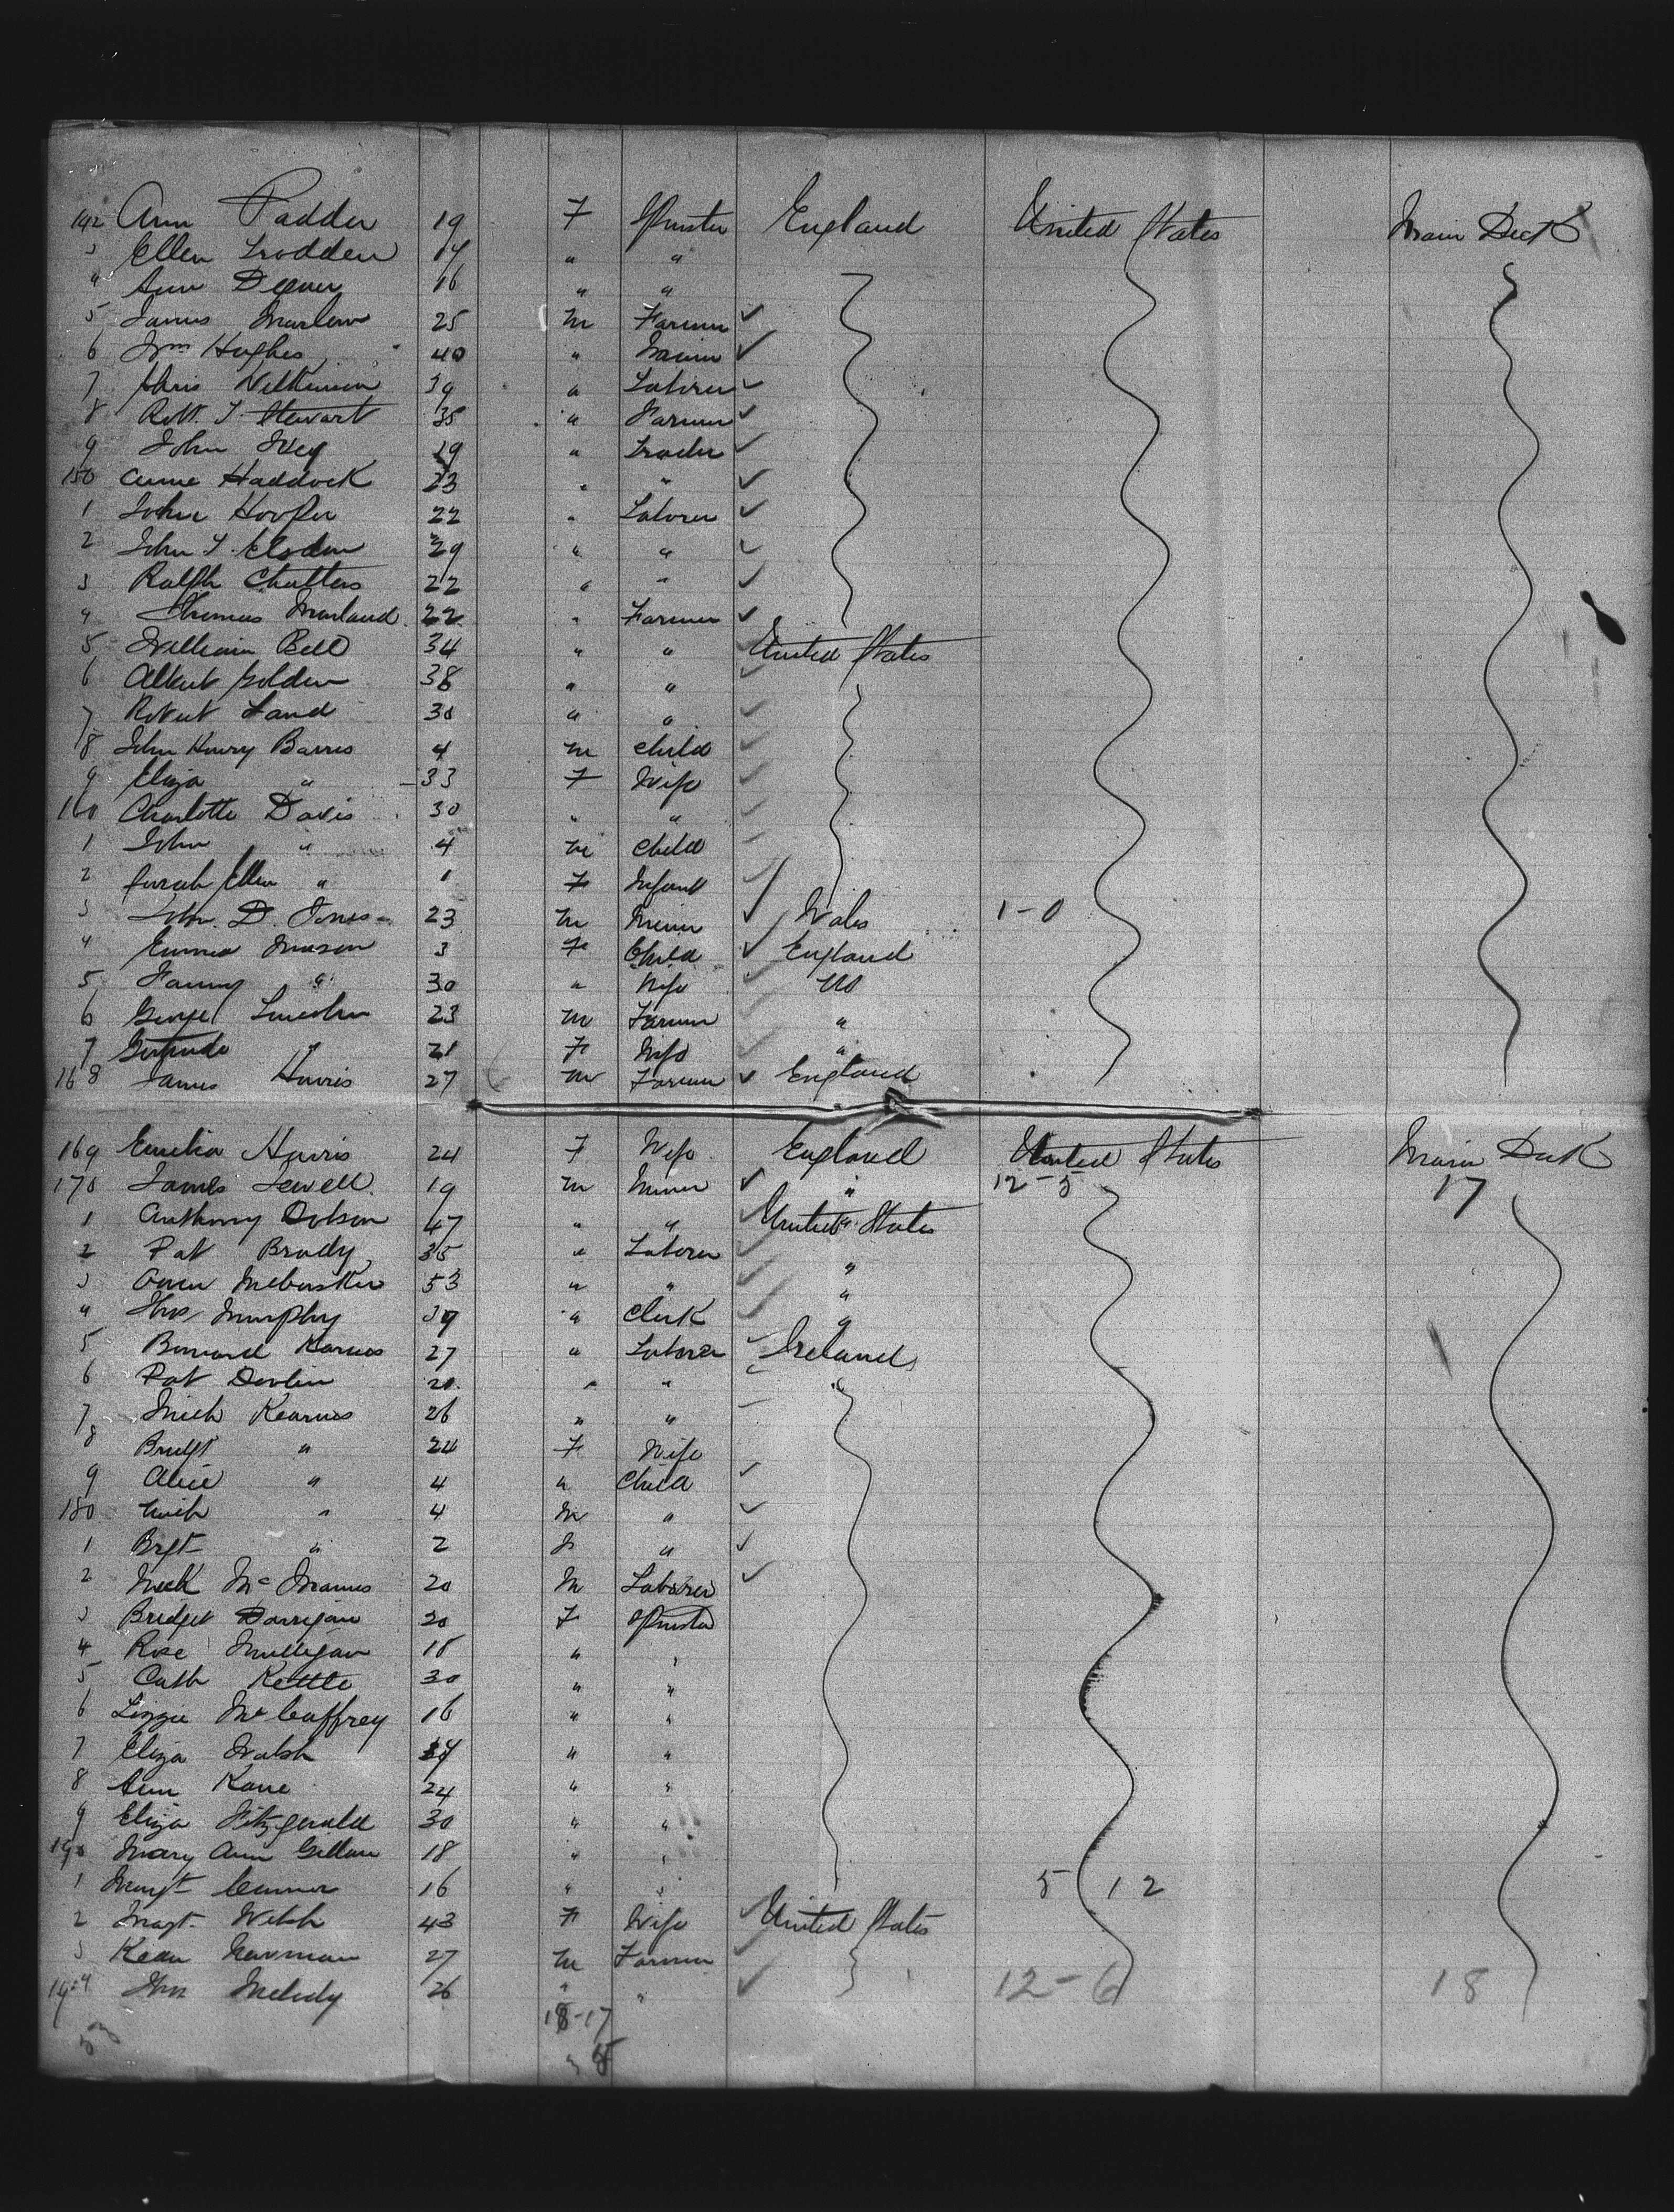 142 Ann Padden 19 F Spinster England United States Main Deck
3 Ellen 14 " "
4 Ann 16 " "
5 James Marlow 25 m Farmer ✓
6 Wm Hughes 40 " ✓
7 Chris Wilkinson 39 " Laborer ✓
8 Robt. T Stewart 35 " Farmer ✓
9 John 19 " ✓
150 Haddock 23 " " ✓
1 John Hooper 22 " Laborer ✓
2 John T. Elsdon 29 " " ✓
3 Ralph Chatters 22 " " ✓
4 Thomas Marland 22 " Farmer ✓
5 William Bell 34 " " ✓ United States
6 Albert Golden 38 " " ✓
7 Robert Land 30 " " ✓
8 John Henry Barres 4 m Child ✓
9 Eliza " 33 F Wife ✓
160 Charlotte Davis 30 " " ✓
1 John " 4 m Child ✓
2 Sarah Ellen " 1 F Infant ✓
3 John D. Jones 23 m Miner ✓ Wales 1-0
4 Emma Mason 3 F Child ✓ England
5 Fanny " 30 " Wife ✓ US
6 George Lincoln 23 m Farmer ✓ "
7 Gertrude " 21 F Wife ✓ "
168 James Harris 27 m Farmer ✓ England
169 Emelia Harris 24 F Wife England United States Main Deck
170 James Jewell 19 m Miner ✓ " 12-5 17
1 Anthony Dobson 47 " " ✓ United States
2 Pat Brady 35 " Laborer ✓ "
3 Owen 53 " " ✓ "
4 Thos Murphy 39 " Clerk ✓ "
5 Bernard Karnes 27 " Laborer ✓ Ireland
6 Pat Devlin 20 " "
7 Mich Kearnes 26 " "
8 Bridgt " 24 F Wife
9 Alice " 4 " Child ✓
180 Mich " 4 m " ✓
1 Brgt " 2 " ✓
2 Mick McManus 20 m Laborer ✓
3 Bridget Darrigan 20 F Spinster
4 Rose Mulligan 18 " "
5 Cath Kettle 30 " "
6 Lizzie McCaffrey 16 " "
7 Eliza Walsh " "
8 Ann Kane 24 " "
9 Eliza Fitzgerald 30 " "
190 Mary Ann Gillan 18 " "
1 Margt Connor 16 " " 5 12
2 Magt. Welsh 43 F Wife ✓ United States
3 Kean 27 m Farmer ✓
194 Melody 26 " " ✓ 12-6 18
18-17